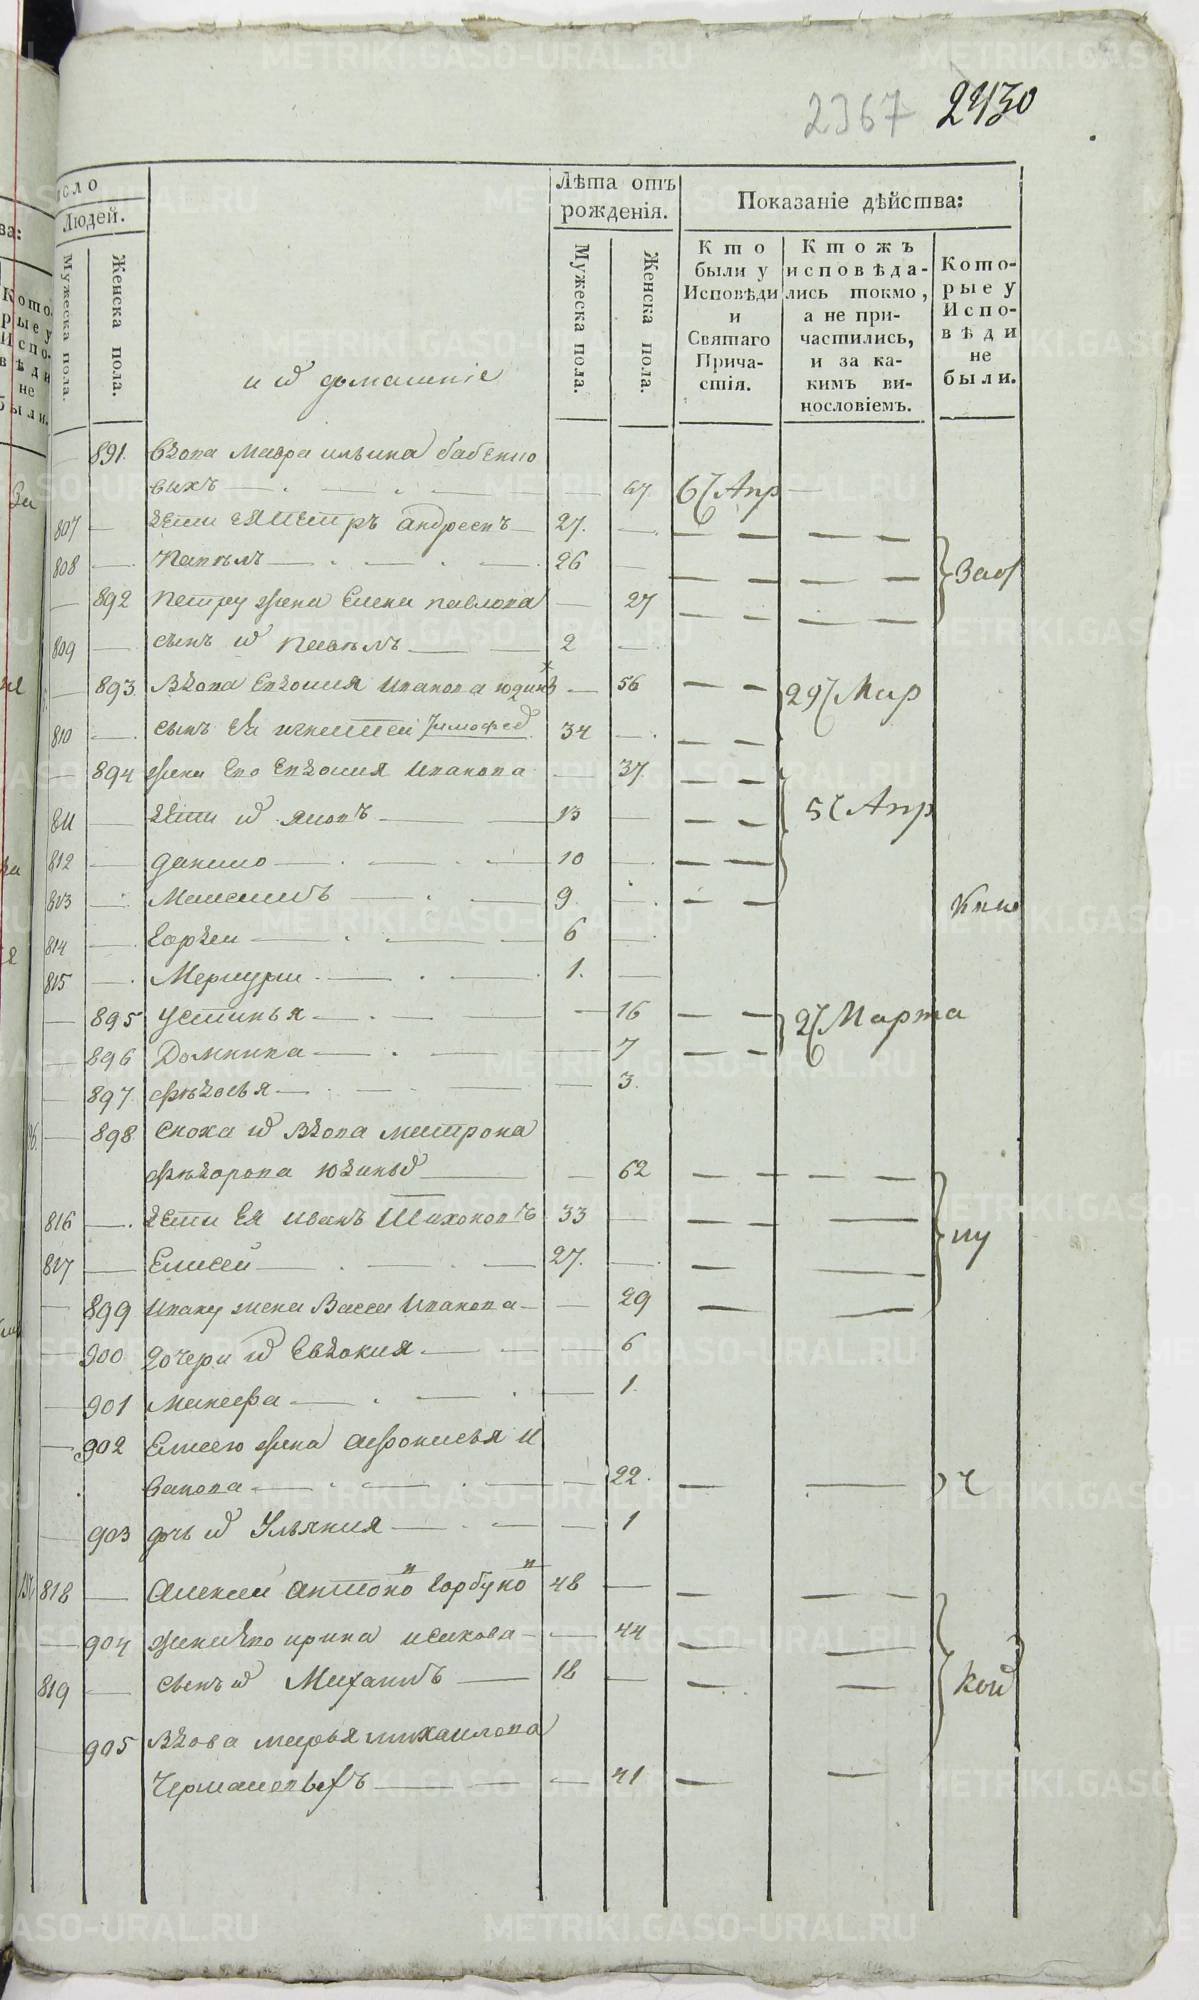 2367 2430
исло
Людей.
Мужеска пола.
Женска пола.
Лѣта отъ
рожденія.
Мужеска пола.
Женска пола.
Показаніе дѣйства:
Кто
были у
Исповѣди
и
Святаго
Прича-
стія.
Ктожъ
исповѣда-
лись токмо,
а не при-
частились,
и за ка-
кимъ ви-
нословіемъ.
Кото-
рые у
Испо-
вѣди
не
были.
и ихъ домашніе
891 вдова Мавра ильина бабкино
выхъ 67 6 Апр
807 дети ея Петръ андреевъ 27
808 Павелъ 26 Заб
892 Петру жена Елена павлова 27
809 сынъ их Павелъ 2
893 Вдова Евдокия Иванова юдинъ 56 29 Мар
810 сынъ Ея игнатей тимофе 34
894 жена Его Евдокия Иванова 37
811 дети их Яковъ 13 5 Апр
812 данило 10
813 Максимъ 9
814 Гордеи 6
815 Меркури 1
895 Устинья 16 26 Марта
896 Домника 7
897 Федосья 3
898 сноха их Вдова матрона
Федорова юдиных 62
816 дети Ея Иванъ Тихоновъ 33
817 Елисей 27
899 Ивану жена Васса Иванова 29
900 дочери их Евдокия 6
901 Манефа 1
902 Елисею жена афонасья И
ванова 22
903 дочь их Ульяния 1
818 Алексей антоно Горбуно 48
904 жена Его ирина исакова 44
819 сынъ их Михаилъ 18 Кои
905 Вдова марья михаилова
41